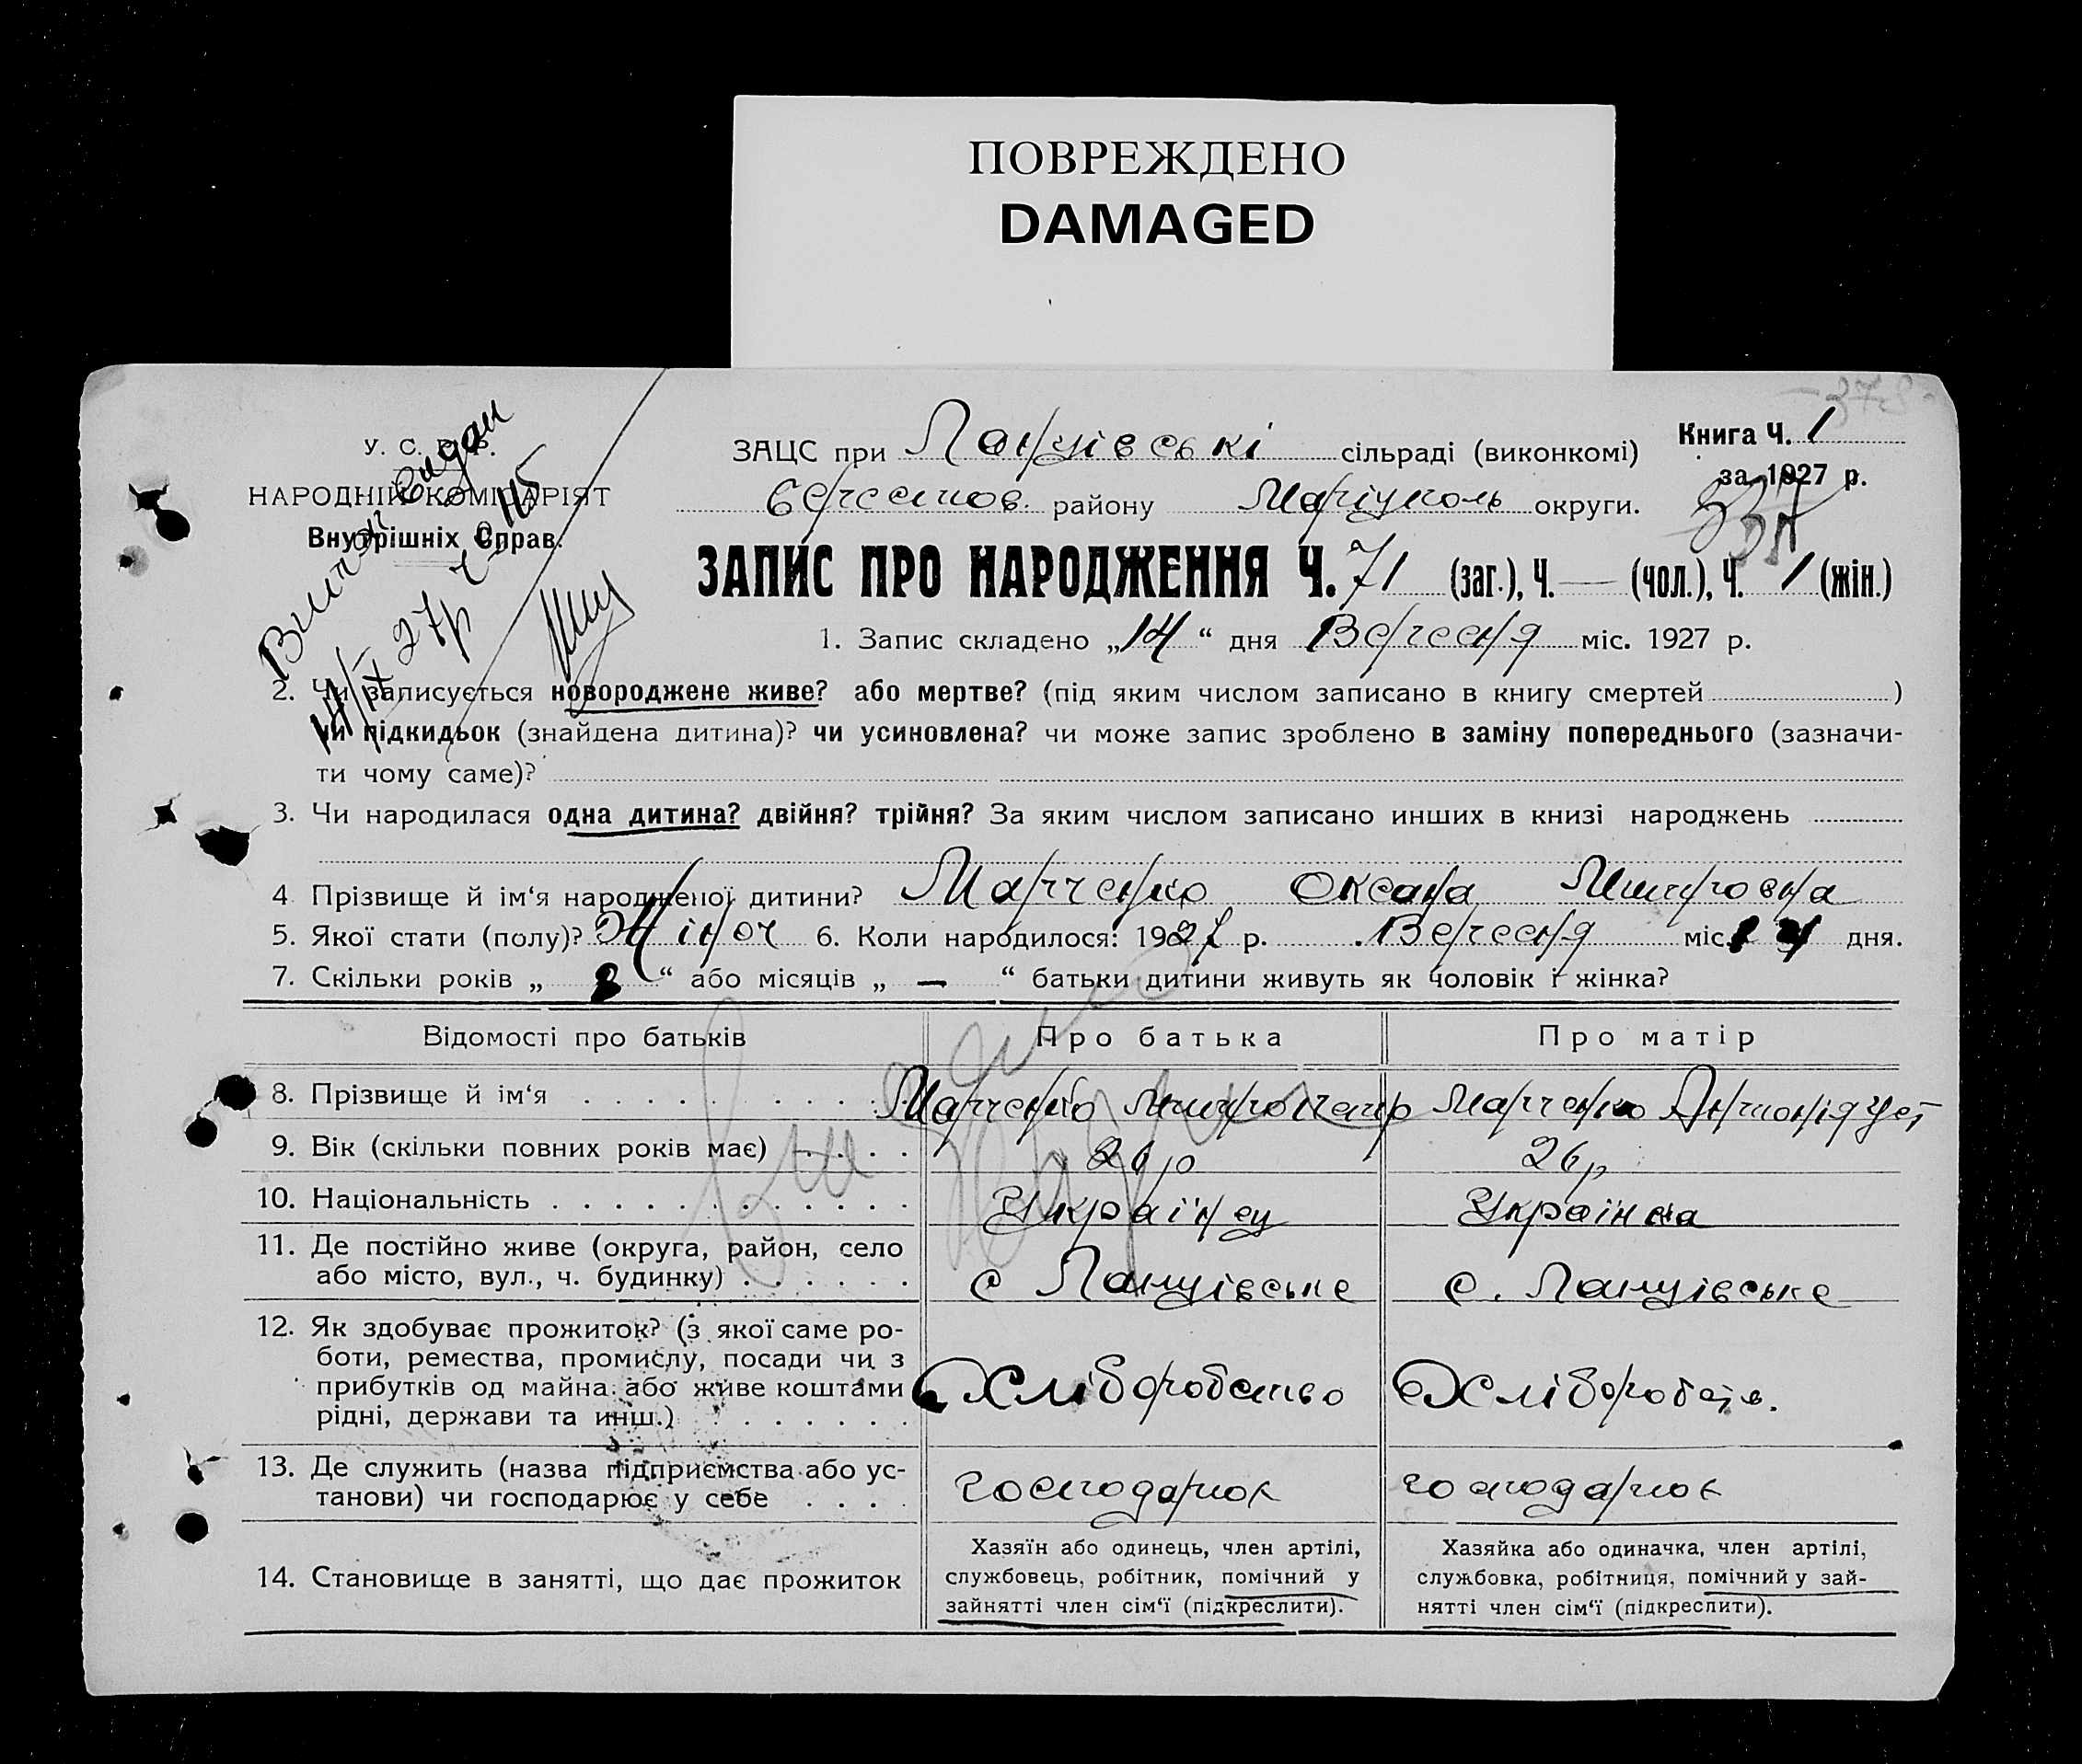 ПОВРЕЖДЕНО
DAMAGED
У. С. Р. Р.
НАРОДНІЙ КОМІСАРІЯТ
Внутрішніх Справ.
Витяг видан
14/IX 27р
ЗАЦС при сільраді (виконкомі)
району Маріуполь округи.
Книга Ч. 1
за 1927 р.
337
ЗАПИС ПРО НАРОДЖЕННЯ Ч. 71 (заг.), Ч. — (чол.), Ч. 1 (жін.)
1. Запис складено „14“ дня Вересня міс. 1927 р.
2. Чи записується новороджене живе? або мертве? (під яким числом записано в книгу смертей )
чи підкидьок (знайдена дитина)? чи усиновлена? чи може запис зроблено в заміну попереднього (зазначи-
ти чому саме)?
3. Чи народилася одна дитина? двійня? трійня? За яким числом записано инших в книзі народжень
4 Прізвище й ім‘я народженої дитини? Марченко Оксана
5. Якої стати (полу)? Жіноч 6. Коли народилося: 1927 р. Вересня міс. дня.
7. Скільки років „ “ або місяців „ — “ батьки дитини живуть як чоловік і жінка?
Відомості про батьків Про батька Про матір
8. Прізвище й ім‘я Марченко Марченко
9. Вік (скільки повних років має) 26р 26р
10. Національність Українец Українка
11. Де постійно живе (округа, район, село
або місто, вул., ч. будинку) с Ланцівське с. Ланцівське
12. Як здобуває прожиток? (з якої саме ро-
боти, ремества, промислу, посади чи з
прибутків од майна або живе коштами
рідні, держави та инш.) Хліборобство Хліборобств.
13. Де служить (назва підприємства або ус-
танови) чи господарює у себе господарює господарює
14. Становище в занятті, що дає прожиток
Хазяїн або одинець, член артілі,
службовець, робітник, помічний у
зайнятті член сім‘ї (підкреслити).
Хазяйка або одиначка, член артілі,
службовка, робітниця, помічний у зай-
нятті член сім‘ї (підкреслити).